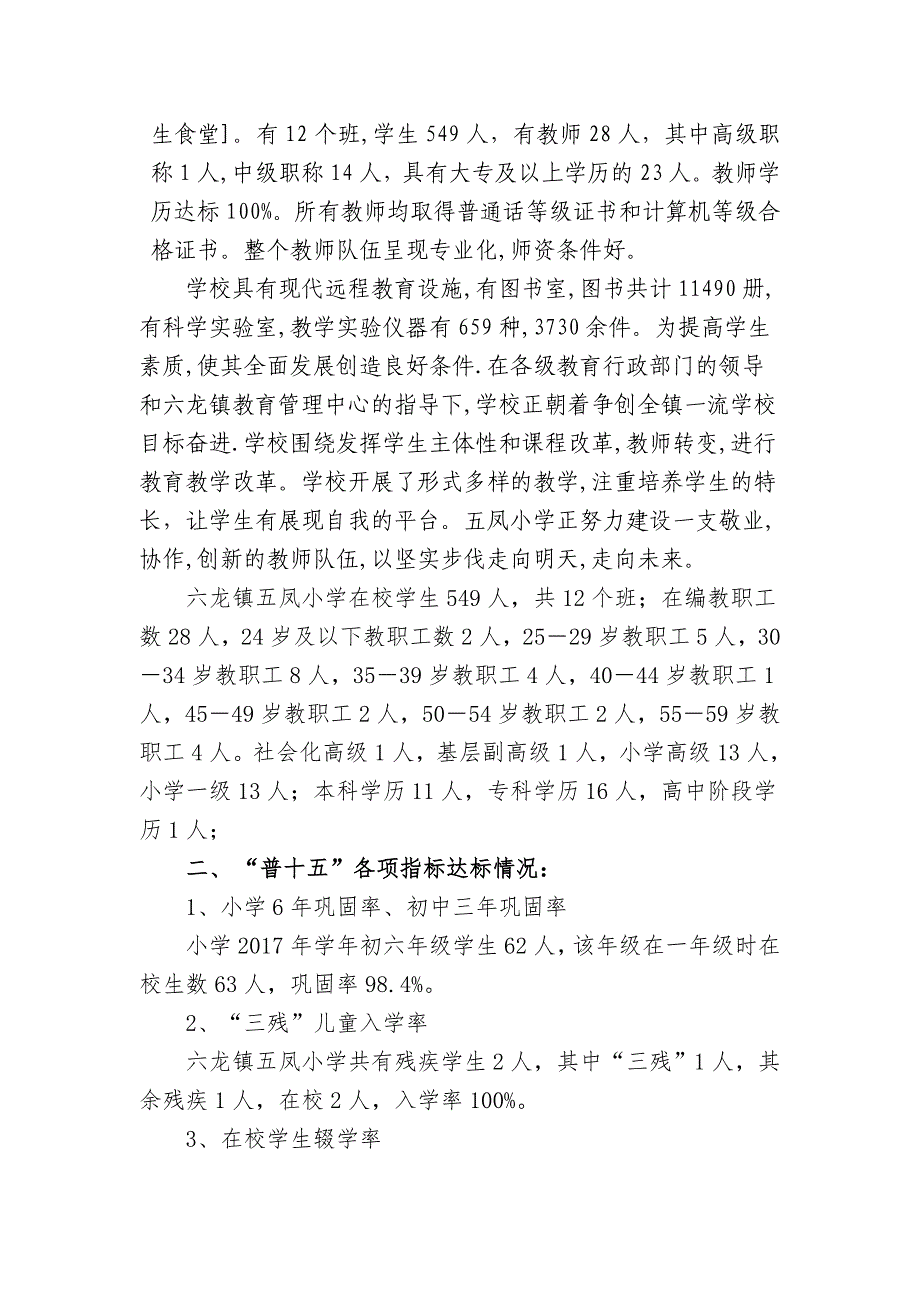 生食堂]。有12个班,学生549人，有教师28人，其中高级职
称1人,中级职称14人，具有大专及以上学历的23人。教师学
历达标100%。所有教师均取得普通话等级证书和计算机等级合
格证书。整个教师队伍呈现专业化,师资条件好。
学校具有现代远程教育设施,有图书室,图书共计11490册,
有科学实验室,教学实验仪器有659种,3730余件。为提高学生
素质,使其全面发展创造良好条件.在各级教育行政部门的领导
和六龙镇教育管理中心的指导下,学校正朝着争创全镇一流学校
目标奋进.学校围绕发挥学生主体性和课程改革,教师转变,进行
教育教学改革。学校开展了形式多样的教学,注重培养学生的特
长，让学生有展现自我的平台。五凤小学正努力建设一支敬业,
协作,创新的教师队伍,以坚实步伐走向明天,走向未来。
六龙镇五凤小学在校学生549人，共12个班；在编教职工
数28人，24岁及以下教职工数2人，25－29岁教职工5人，30
－34岁教职工8人，35－39岁教职工4人，40－44岁教职工1
人，45－49岁教职工2人，50－54岁教职工2人，55－59岁教
职工4人。社会化高级1人，基层副高级1人，小学高级13人，
小学一级13人；本科学历11人，专科学历16人，高中阶段学
历1人；
二、“普十五”各项指标达标情况：
1、小学6年巩固率、初中三年巩固率
小学2017年学年初六年级学生62人，该年级在一年级时在
校生数63人，巩固率98.4%。
2、“三残”儿童入学率
六龙镇五凤小学共有残疾学生2人，其中“三残”1人，其
余残疾1人，在校2人，入学率100%。
3、在校学生辍学率